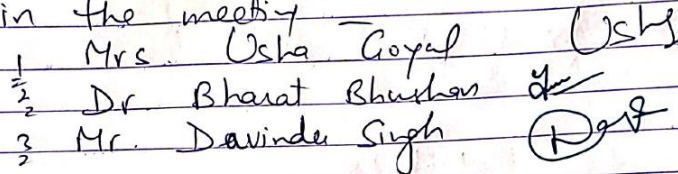 in the meeting
1 Mrs. Usha Goyal Usha
2 Dr. Bharat Bhushan
3 Mr. Davinder Singh